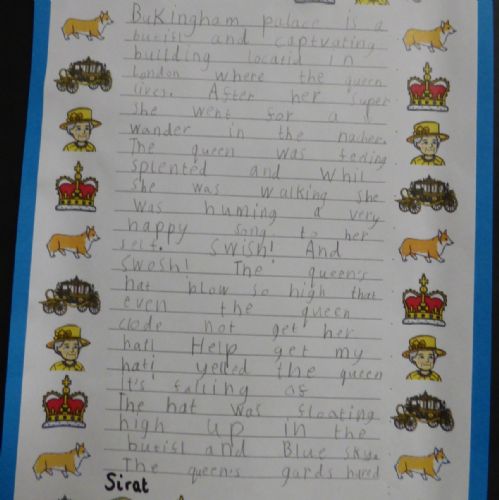 BuKingham palace is a
butifl and captvating
building locatid in
london where the queen
lives. After her super
she went for a
wander in the nacher.
The queen was feeling
splented and whil
she was walking she
was huming a very
happy song to her
self. Swish! And
Swosh! The queen's
hat blow so high that
even the queen
clode not get her
hat! Help get my
hat! yelled the queen
It's falling of
The hat was floating
high up in the
butifl and Blue sky.
The queen's gards hured
Sirat